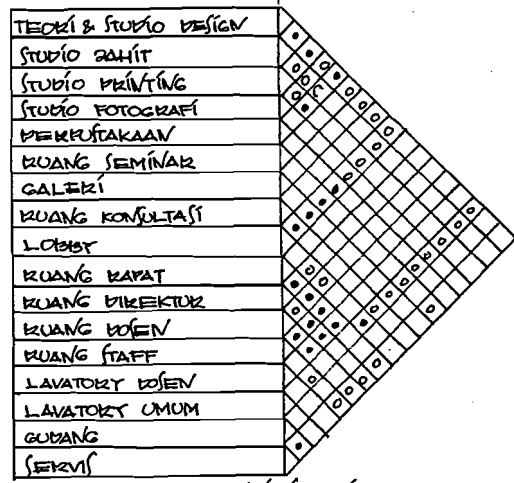 TEORI & STUDIO DESIGN
STUDIO JAHIT
STUDIO PRINTING
STUDIO FOTOGRAFI
PERPUSTAKAAN
RUANG SEMINAR
GALERI
RUANG KONSULTASI
LOBBY
RUANG RAPAT
RUANG DIREKTUR
RUANG DOSEN
RUANG STAFF
LAVATORY DOSEN
LAVATORY UMUM
GUDANG
SERVIS